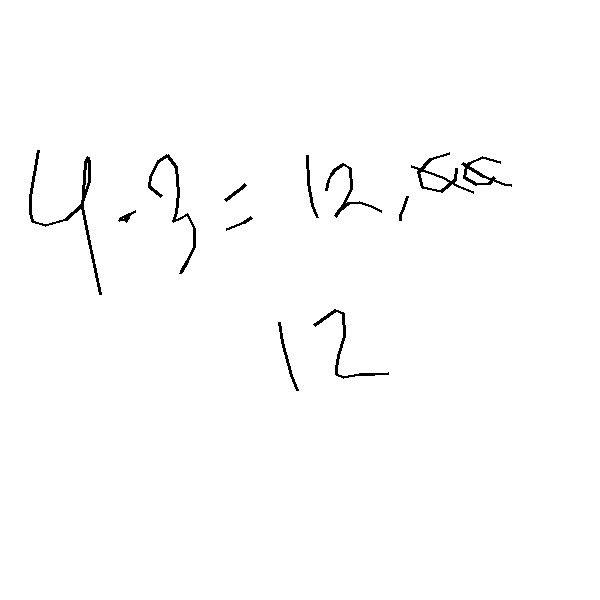 4 · 3 = 12,
12